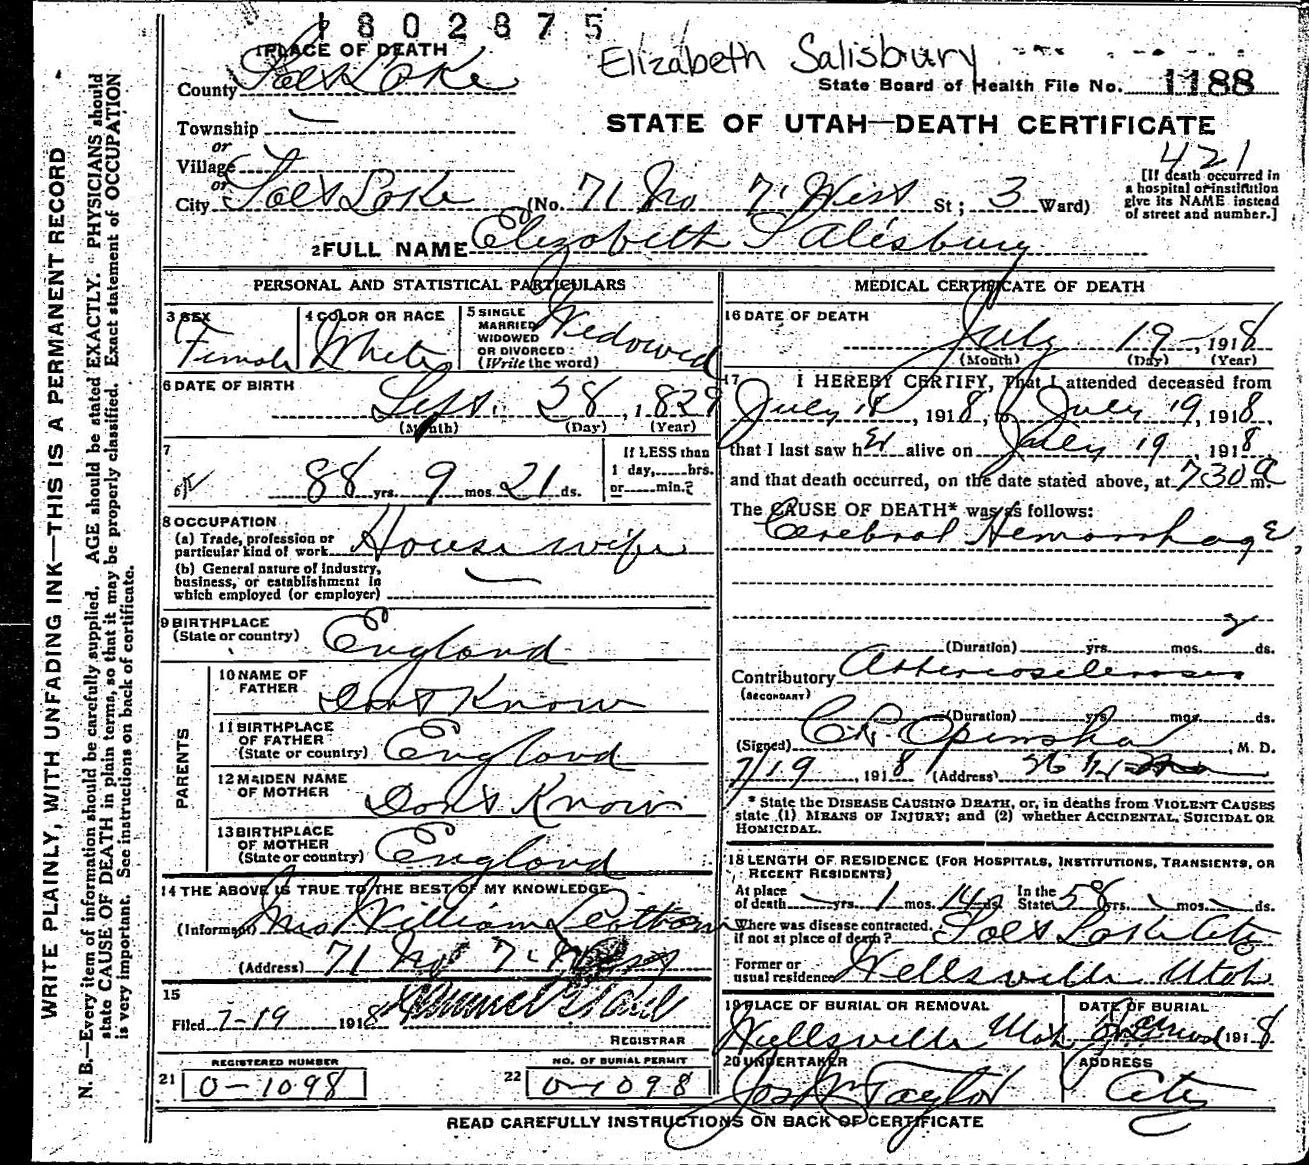 1802875
1 PLACE OF DEATH
Elizabeth Salisbury
County Salt Lake
State Board of Health File No. 1188
Township
STATE OF UTAH—DEATH CERTIFICATE
or
421
Village
[If death occurred in
a hospital or institution
give its NAME instead
of street and number.]
or
City Salt Lake (No. 71 No 7 West St; 3 Ward)
2 FULL NAME Elizabeth Salisbury
PERSONAL AND STATISTICAL PARTICULARS
3 SEX
Female
4 COLOR OR RACE
White
5 SINGLE
MARRIED
WIDOWED
OR DIVORCED
(Write the word)
Widowed
6 DATE OF BIRTH
Sept. 28, 1829
(Month) (Day) (Year)
7
88 yrs. 9 mos. 21 ds.
If LESS than
1 day, hrs.
or min.?
8 OCCUPATION
(a) Trade, profession or
particular kind of work House wife
(b) General nature of Industry,
business, or establishment in
which employed (or employer)
9 BIRTHPLACE
(State or country) England
PARENTS
10 NAME OF
FATHER Dont Know
11 BIRTHPLACE
OF FATHER
(State or country) England
12 MAIDEN NAME
OF MOTHER Dont Know
13 BIRTHPLACE
OF MOTHER
(State or country) England
14 THE ABOVE IS TRUE TO THE BEST OF MY KNOWLEDGE
(Informant) Mrs William
(Address) 71 No 7 West
15
Filed 7-19 1918
REGISTRAR
REGISTERED NUMBER
21 0-1098
NO. OF BURIAL PERMIT
22 0-1098
MEDICAL CERTIFICATE OF DEATH
16 DATE OF DEATH
July 19, 1918
(Month) (Day) (Year)
17 I HEREBY CERTIFY, That I attended deceased from
July 18, 1918, to July 19, 1918,
that I last saw her alive on July 19, 1918
and that death occurred, on the date stated above, at 730 a m.
The CAUSE OF DEATH* was as follows:
Cerebral Hemorrhage
2
(Duration) yrs. mos. ds.
Contributory Arteriosclerosis
(SECONDARY)
(Duration) yrs. mos. ds.
(Signed) C.R. Openshaw, M. D.
7/19, 1918 (Address)
* State the DISEASE CAUSING DEATH, or, in deaths from VIOLENT CAUSES
state (1) MEANS OF INJURY; and (2) whether ACCIDENTAL, SUICIDAL OR
HOMICIDAL.
18 LENGTH OF RESIDENCE (FOR HOSPITALS, INSTITUTIONS, TRANSIENTS, OR
RECENT RESIDENTS)
At place
of death yrs. 1 mos. 14 ds. In the
State 58 yrs. mos. ds.
Where was disease contracted,
if not at place of death? Salt Lake City
Former or
usual residence Wellsville Utah
19 PLACE OF BURIAL OR REMOVAL
Wellsville Utah
DATE OF BURIAL
1918
20 UNDERTAKER
Jos Wm Taylor
ADDRESS
City
READ CAREFULLY INSTRUCTIONS ON BACK OF CERTIFICATE
WRITE PLAINLY, WITH UNFADING INK—THIS IS A PERMANENT RECORD
N. B.—Every item of information should be carefully supplied. AGE should be stated EXACTLY. PHYSICIANS should
state CAUSE OF DEATH in plain terms, so that it may be properly classified. Exact statement of OCCUPATION
is very important. See instructions on back of certificate.